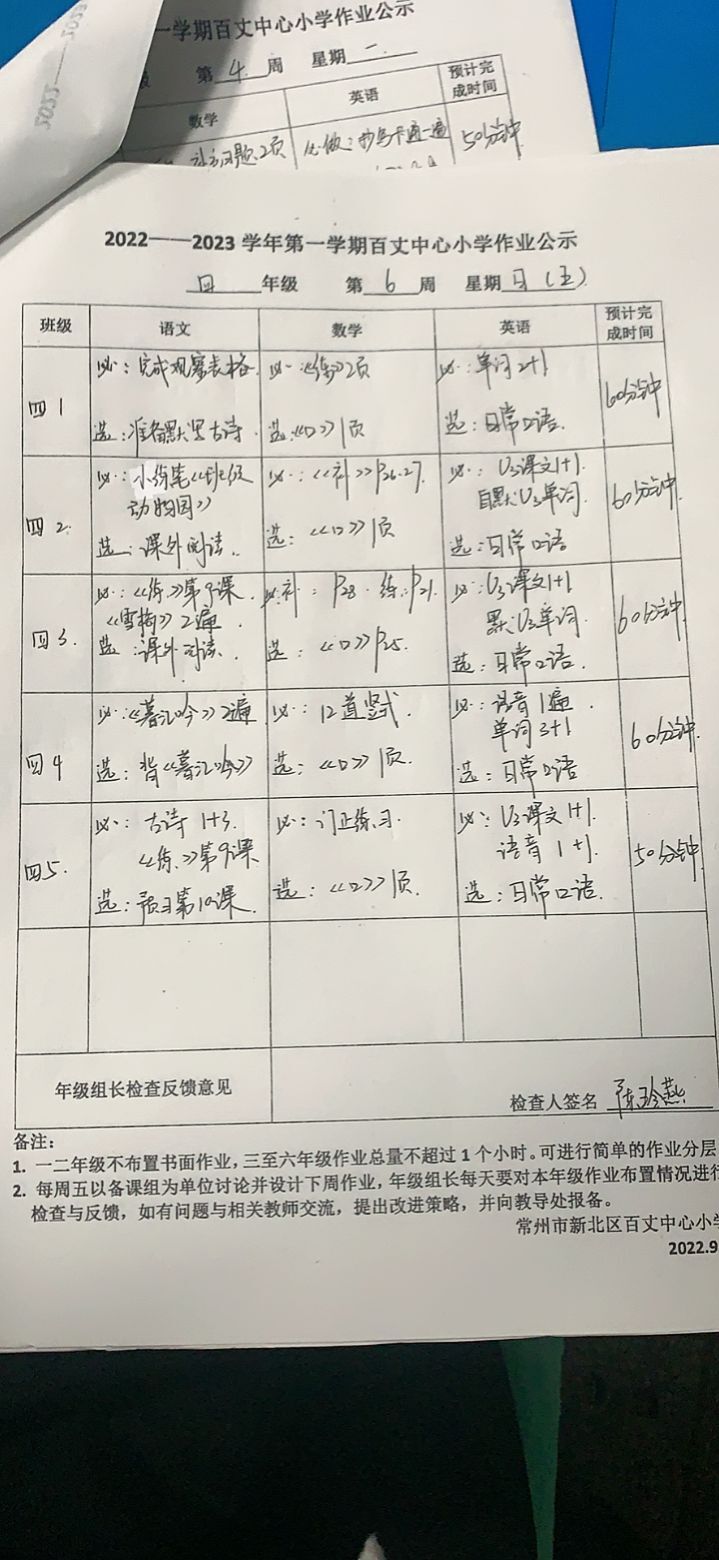 一学期百丈中心小学作业公示
第 4 周 星期 二
数学 英语 预计完成时间
习题2页 必做：抄写卡通一遍 50分钟
2022——2023学年第一学期百丈中心小学作业公示
四 年级 第 6 周 星期 日（五）
班级 语文 数学 英语 预计完成时间
四1
必：完成观察表格.
选：准备默写古诗.
必：《练》2页
选：《口》1页
必：单词2+1
选：日常口语.
60分钟
四2.
必：小练笔《班级
动物园》
选：课外阅读.
必：《补》P26.27.
选：《口》1页
必：U3课文1+1.
自默U3单词.
选：日常口语
60分钟.
四3.
必：《练》第9课.
《雪梅》2遍.
选：课外阅读.
必：补：P28.练：P21.
选：《口》P25.
必：U3课文1+1
默：U3单词.
选：日常口语.
60分钟
四4
必：《暮江吟》2遍
选：背《暮江吟》
必：12道竖式.
选：《口》1页.
必：语音1遍.
单词3+1
选：日常口语
60分钟.
四5.
必：古诗1+3.
《练》第9课
选：预习第10课.
必：订正练习.
选：《口》1页.
必：U3课文1+1.
语音1+1.
选：日常口语.
50分钟
年级组长检查反馈意见
检查人签名 陈玲燕
备注：
1. 一二年级不布置书面作业，三至六年级作业总量不超过1个小时。可进行简单的作业分层
2. 每周五以备课组为单位讨论并设计下周作业，年级组长每天要对本年级作业布置情况进行
检查与反馈，如有问题与相关教师交流，提出改进策略，并向教导处报备。
常州市新北区百丈中心小学
2022.9